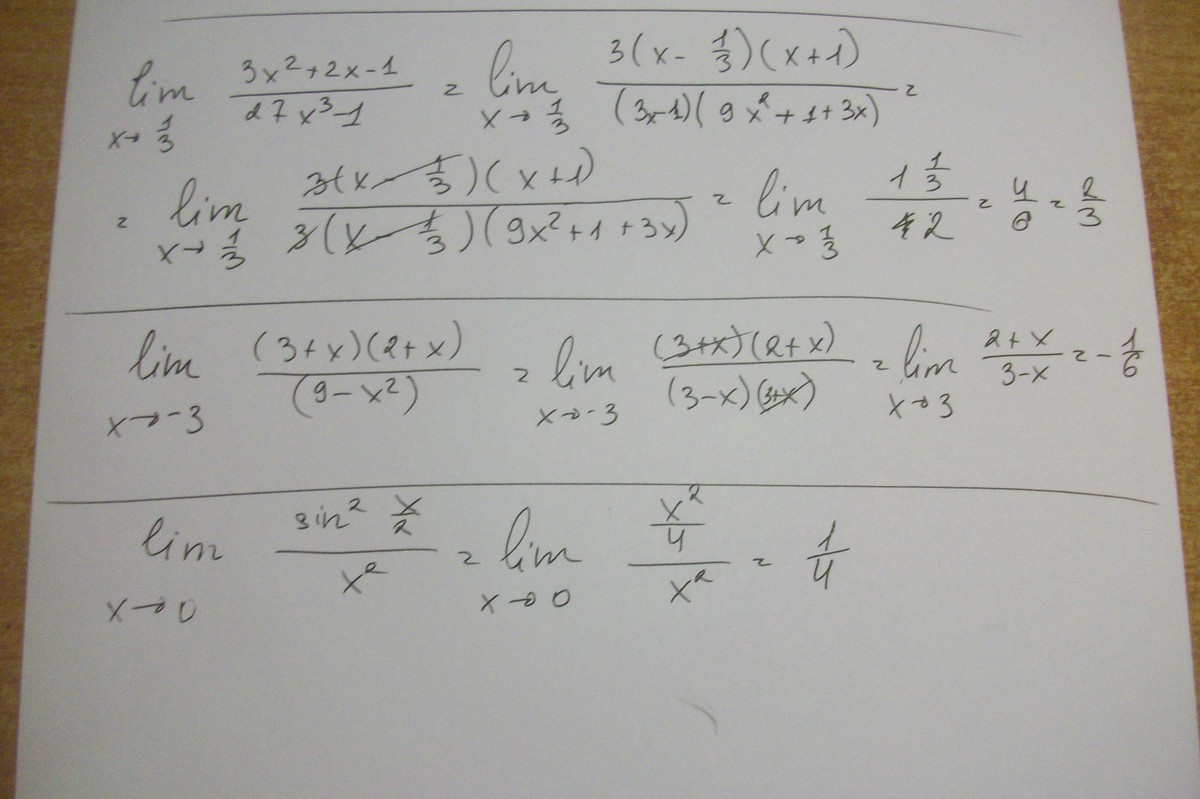 lim x→1/3 (3x²+2x-1)/(27x³-1) = lim x→1/3 3(x-1/3)(x+1)/(3x-1)(9x²+1+3x) =
= lim x→1/3 3(x-1/3)(x+1)/3(x-1/3)(9x²+1+3x) = lim x→1/3 1 1/3 / 2 = 4/6 = 2/3
lim x→-3 (3+x)(2+x)/(9-x²) = lim x→-3 (3+x)(2+x)/(3-x)(3+x) = lim x→3 2+x/3-x = -1/6
lim x→0 sin² x/2 / x² = lim x→0 x²/4 / x² = 1/4